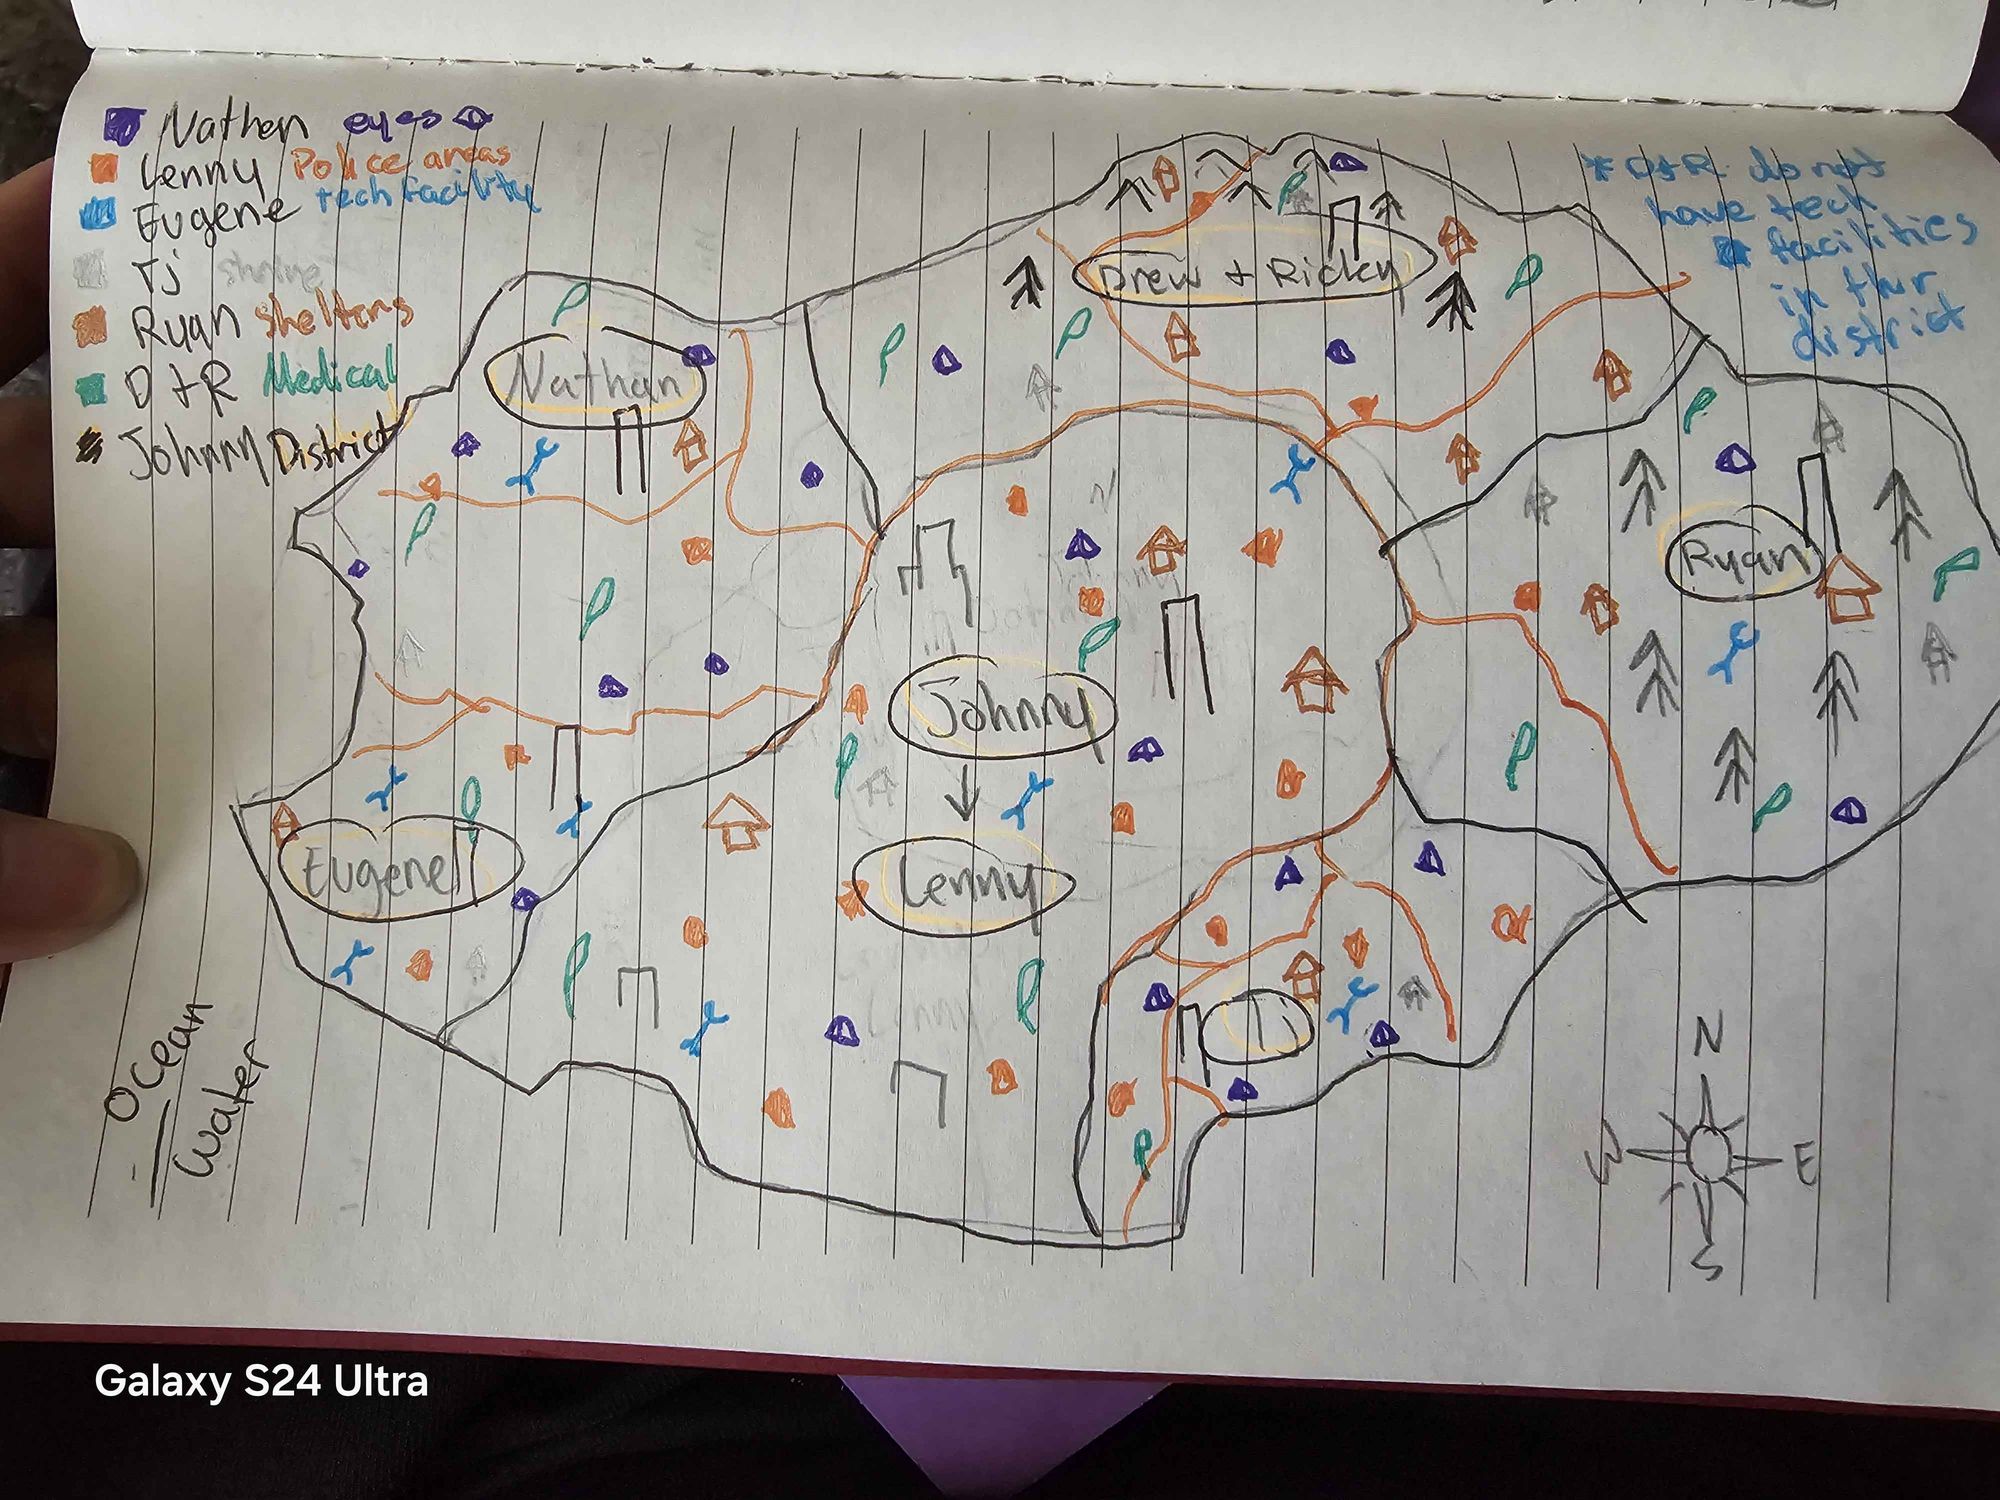 Nathan eyes
Lenny Police areas
Eugene tech facility
Tj shrine
Ryan shelters
D + R Medical
Johnny District
* D+R do not
have tech
facilities
in thir
district
Drew + Ricky
Nathan
Ryan
Johnny
Lenny
Eugene
TJ
Ocean
Water
N
W E
S
Galaxy S24 Ultra